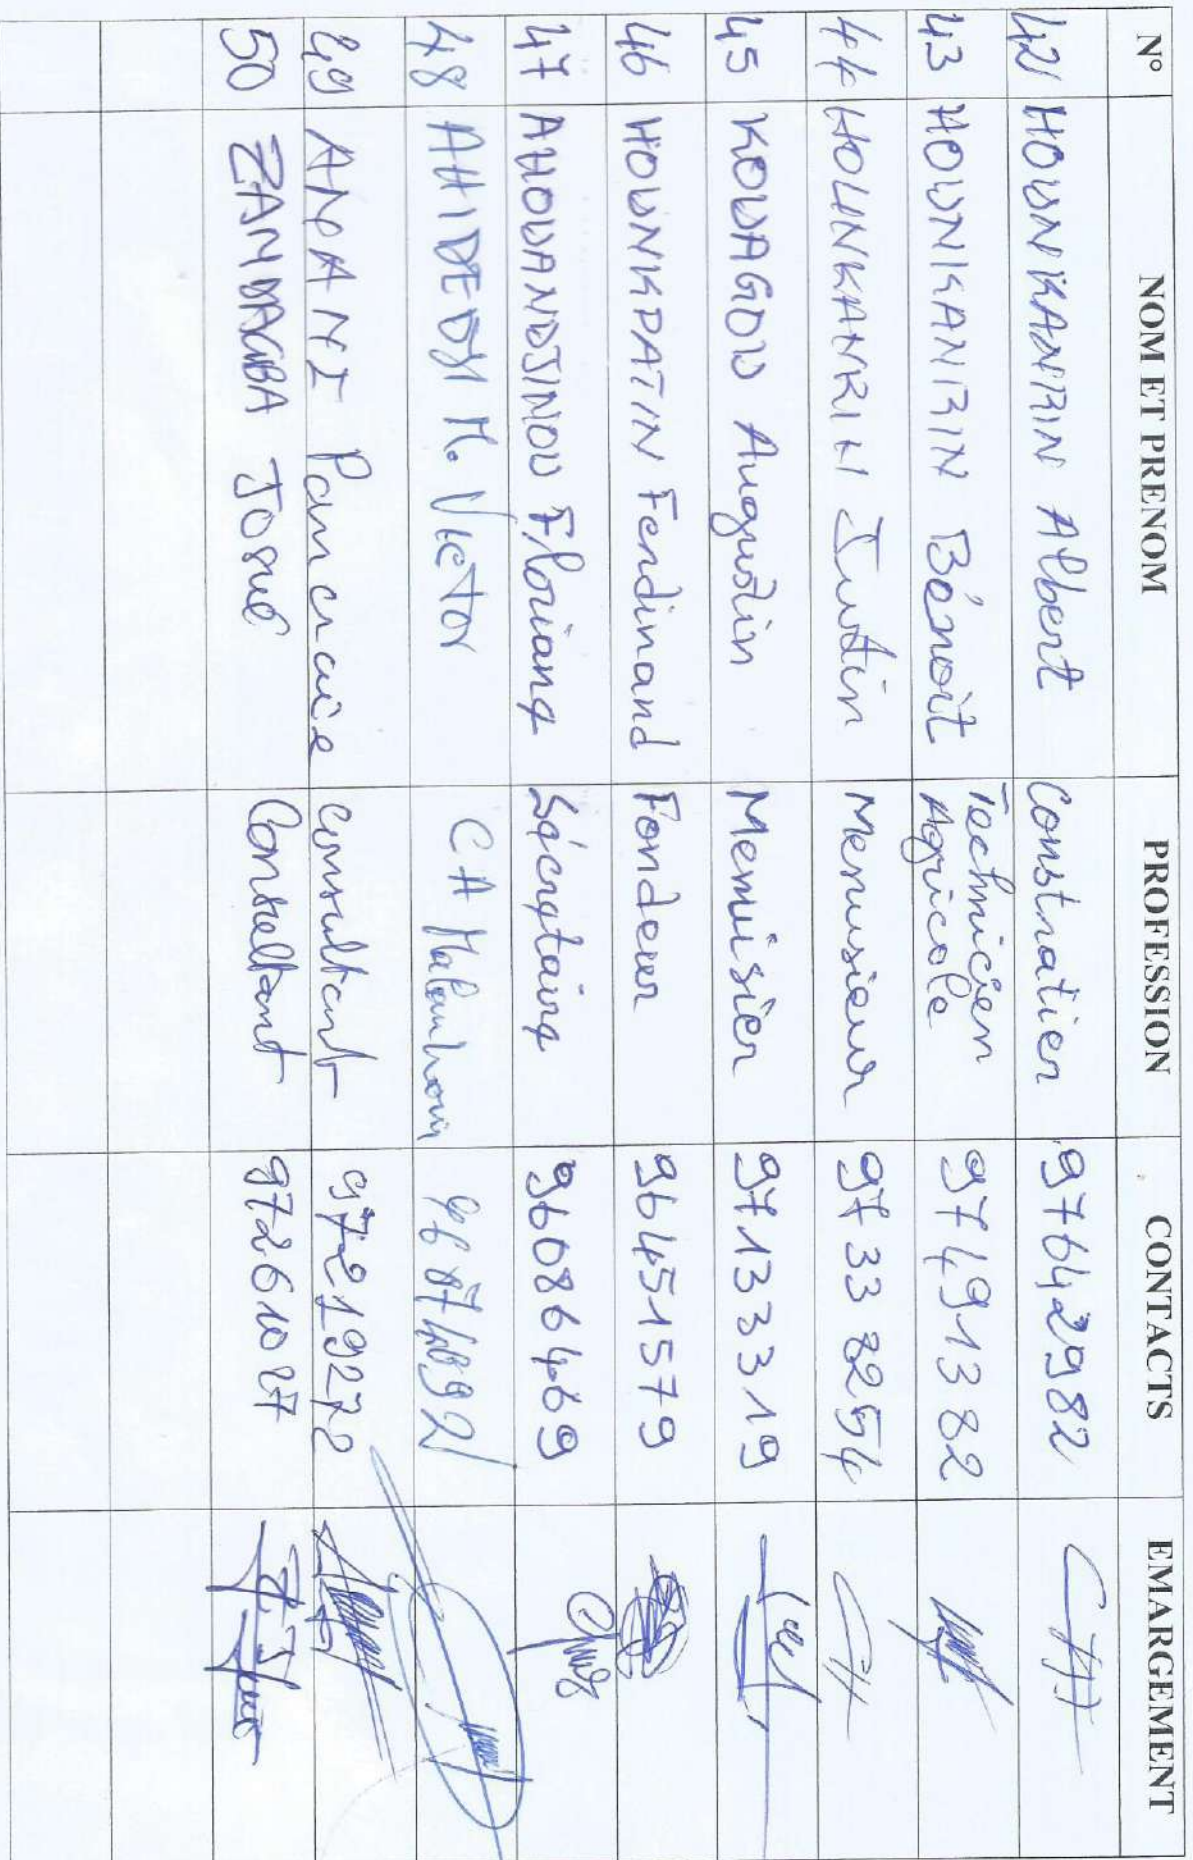 N° NOM ET PRENOM PROFESSION CONTACTS EMARGEMENT
42 HOUNKANRIN Albert Constratier 97642982
43 HOUNKANRIN Bénoit Technicien Agricole 97491382
44 HOUNKANRIN Justin Menusieur 97338254
45 KOUAGOU Augustin Memuisier 97133319
46 HOUNKPATIN Ferdinand Fondeur 96451579
47 AHOUANDJINOU Floriane Sécrétaire 96086469
48 AHIDEDJI M. Victor CA 96074892
49 ANANI Pancraise Consultant 97219272
50 ZANDAGBA Josué Consultant 97261027